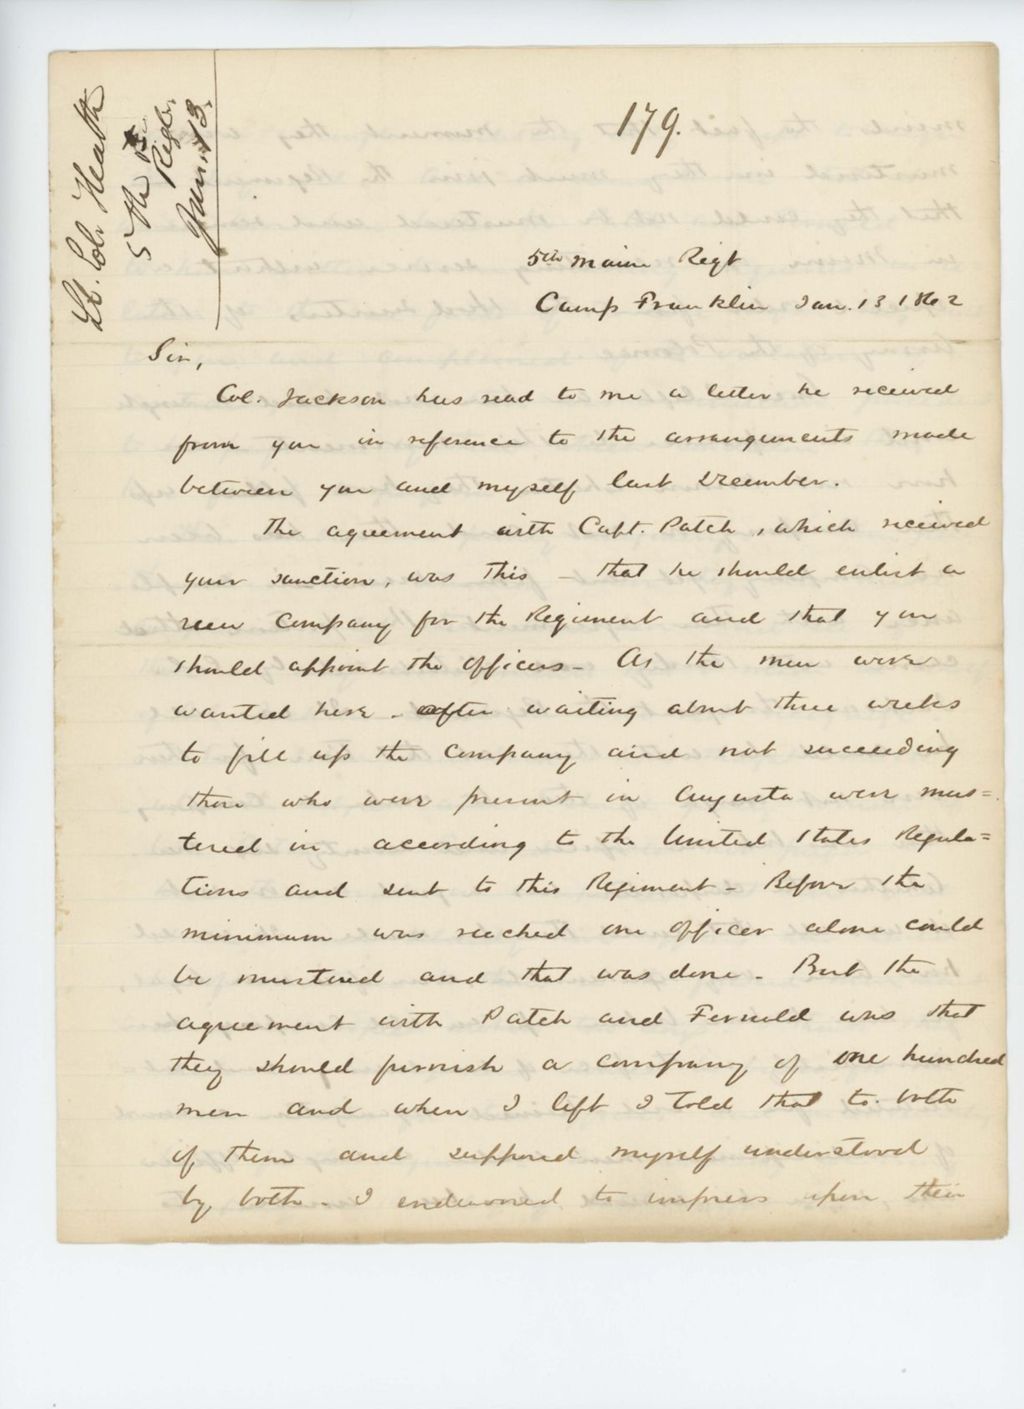 Lt. Col. Heath
5th
Regt.
Jan. 13.
179.
5th Maine Regt
Camp Franklin Jan. 13 1862
Sir,
Col. Jackson has read to me a letter he received
from you in reference to the arrangements made
between you and myself last December.
The agreement with Capt. Patch, which received
your sanction, was this - that he should enlist a
new Company for the Regiment and that you
should appoint the officers - As the men were
wanted here - after waiting about three weeks
to fill up the Company and not succeeding
those who were present in Augusta were mus=
tered in according to the United States Regula=
tions and sent to this Regiment - Before the
minimum was reached one officer alone could
be mustered and that was done - But the
agreement with Patch and Fernald was that
they should furnish a company of one hundred
men and when I left I told that to both
of them and supposed myself understood
by both - I endeavored to impress upon their